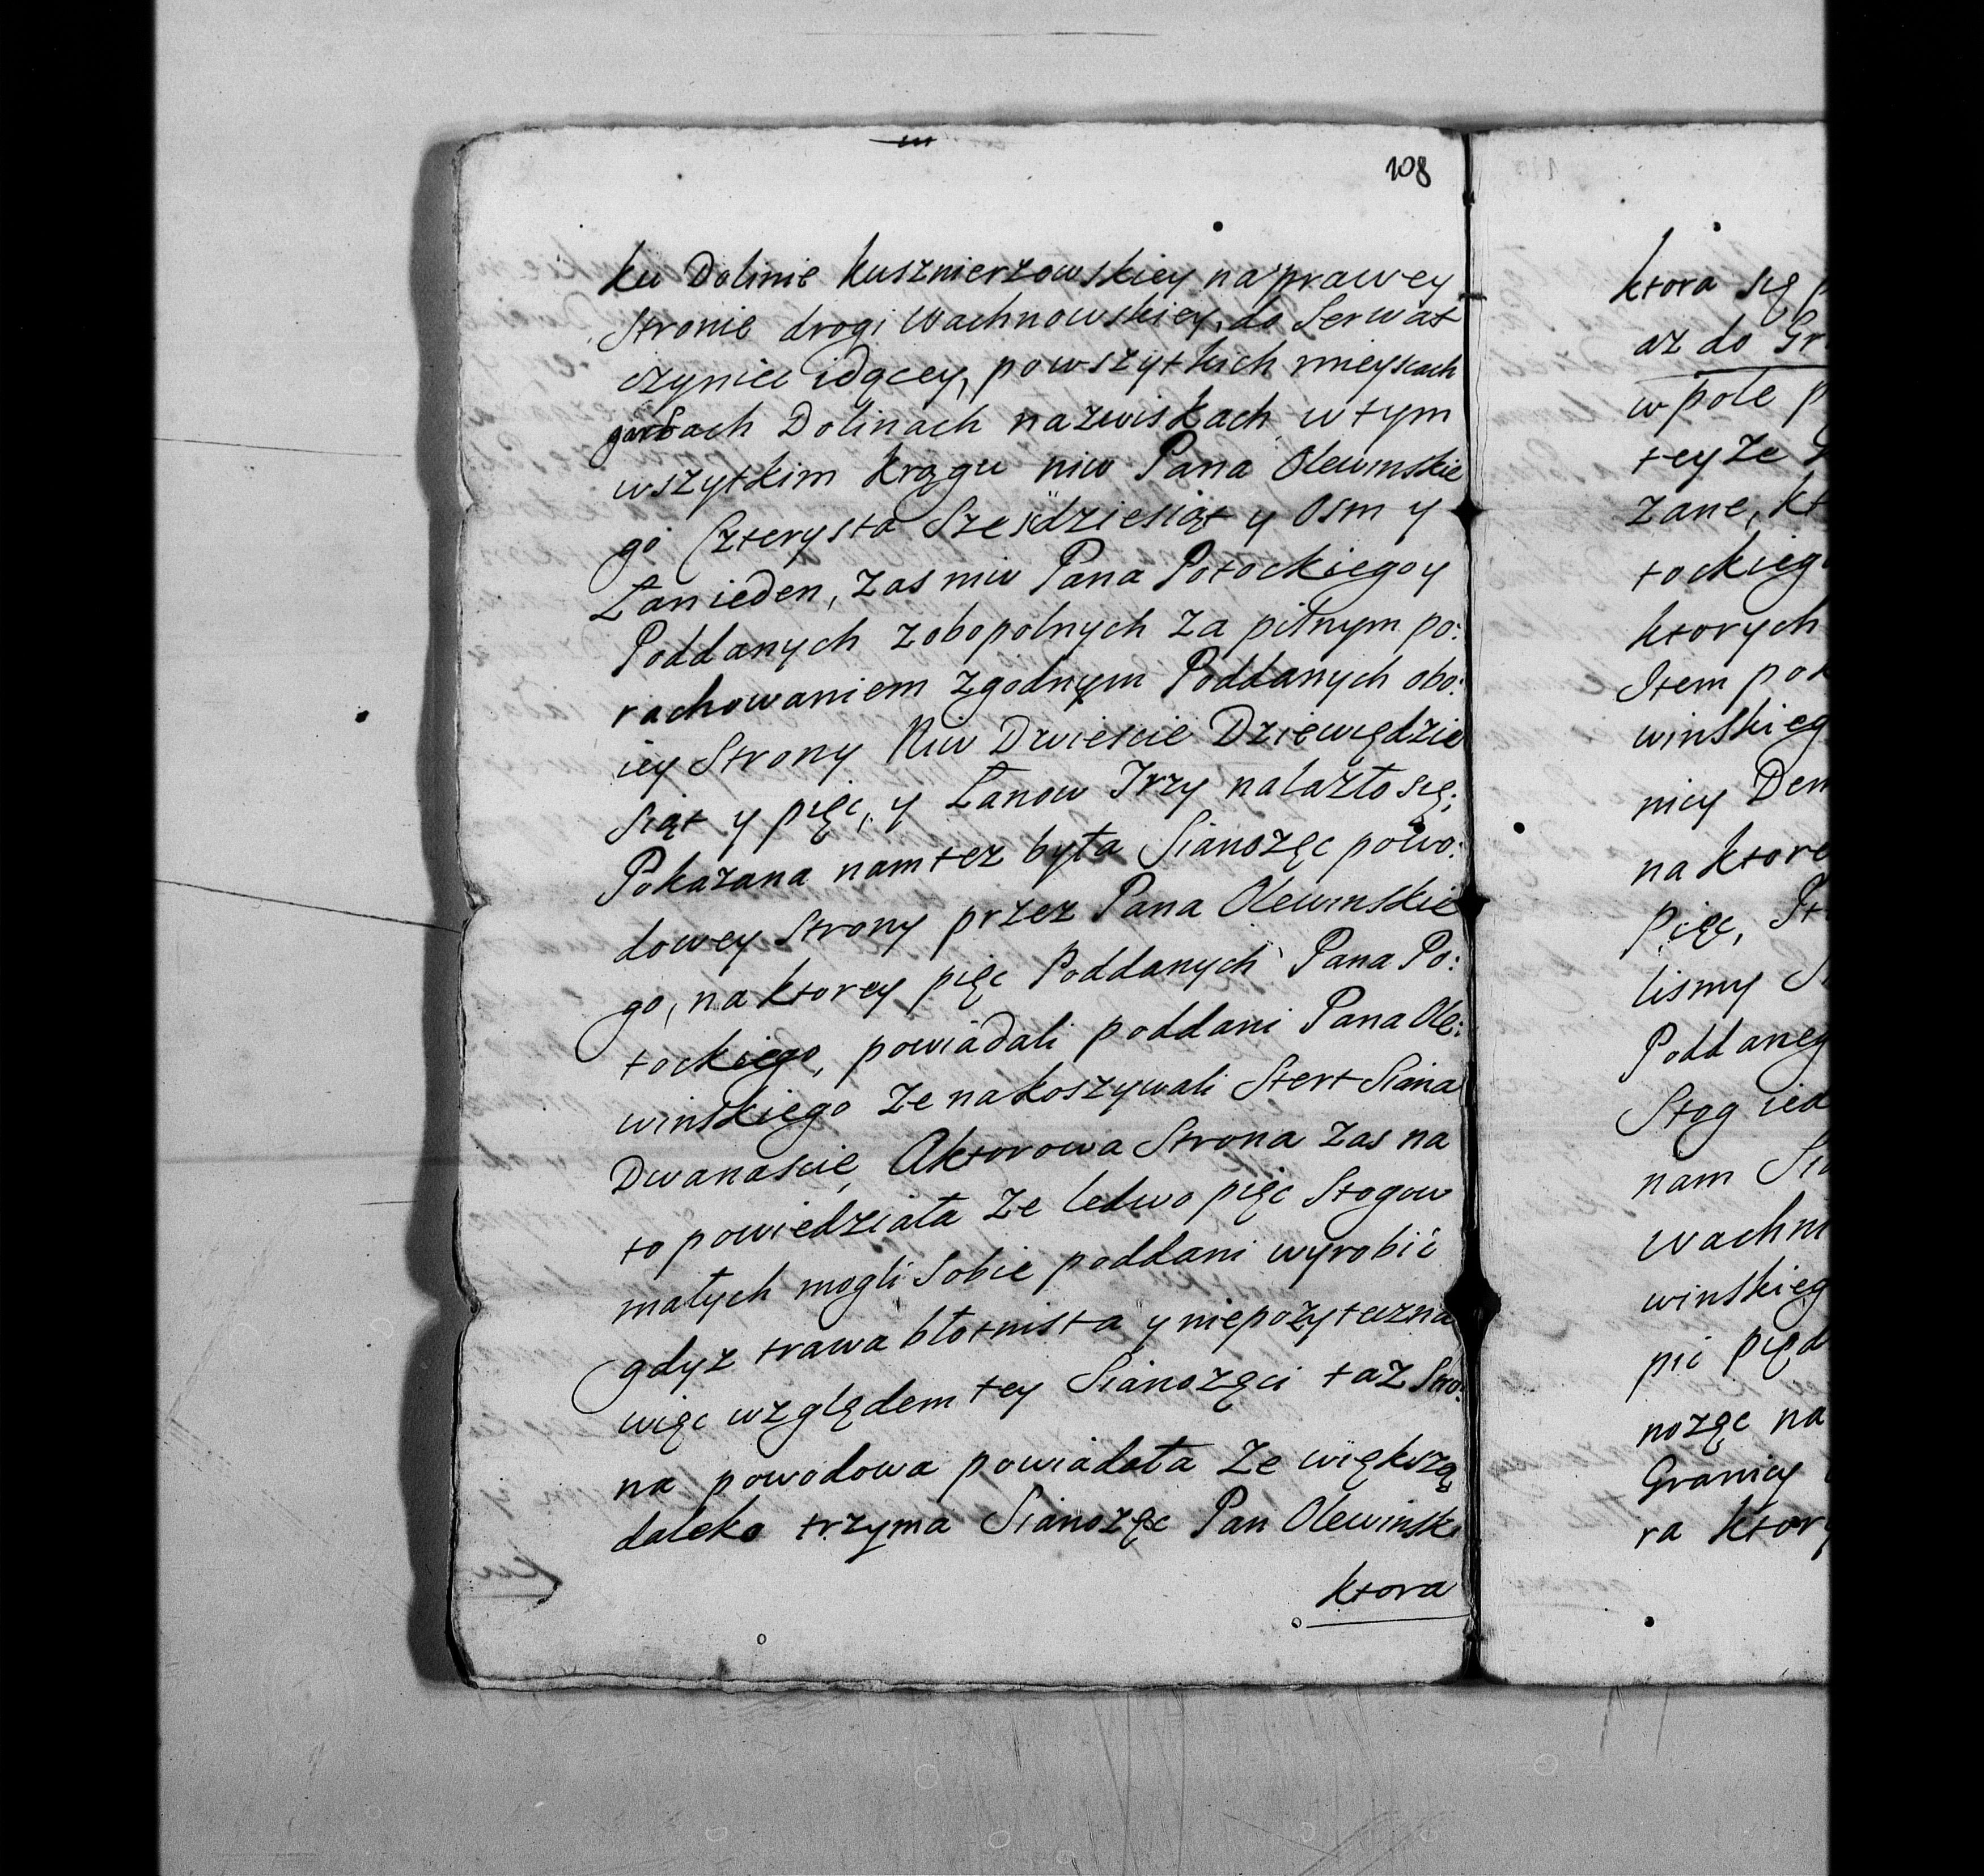 108
ku Dolinie Kusznierzowskiey na prawey
Stronie drogi Wachnowskiey, do Serwat
czyniec idącey, po wszytkich mieyscach
garbach Dolinach nazwiskach w tym
wszytkim krągu niw Pana Olewinskie
go Czterysta Sześdziesiąt y Osm y
Łan ieden, zas niw Pana Potockiego y
Poddanych zobopolnych za pilnym po:
rachowaniem zgodnym Poddanych obo:
iey Strony Niw Dwiescie Dziewiędzie
siąt y pięc, y Łanow Trzy nalazło się;
Pokazana nam tez była Sianozęc powo:
dowey Strony przez Pana Olewinskie
go, na ktorey pięc Poddanych Pana Po:
tockiego, powiadali poddani Pana Ole:
winskiego ze nakoszywali Stert Siana
Dwanascie, Aktorowa Strona zas na
to powiedziała ze ledwo pięc Stogow
małych mogli Sobie poddani wyrobić
gdyz trawa błotnista y niepozyteczna,
więc względem tey Sianozęci taz Stro:
na powodowa powiadała ze większą
daleko trzyma Sianozęc Pan Olewinski
ktora
ktora się
az do
w pole
teyze
zane,
tockieg
ktorych
Item
winskieg
nicy Dem
na ktore
pięc,
lismy
Poddaneg
Stog ied
nam
Wachn
winskieg
pic pięd
nozęc na
Granicy
ra ktory